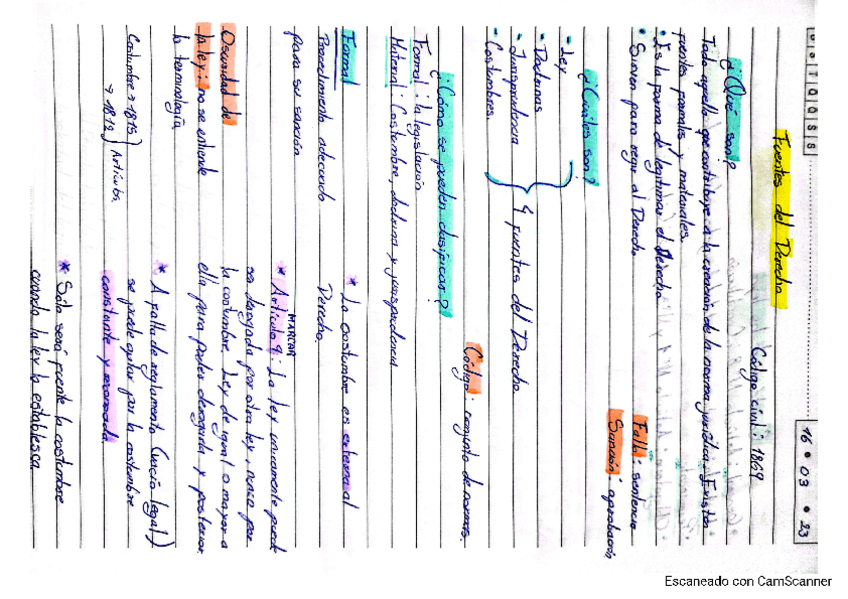 D O L T Q Q S S
16 • 03 • 23
Fuentes del Derecho
Código civil: 1869
¿Qué son?
Todo aquello que contribuye a la creación de la norma jurídica. Existen
fuentes formales y materiales.
• Es la forma de legitimar el Derecho
• Sirven para regir al Derecho
Fallo: sentencia
Sanción: aprobación
¿Cuáles son?
• Ley
• Doctrinas
• Jurisprudencia
• Costumbres
4 fuentes del Derecho
Código: conjunto de normas.
¿Cómo se pueden clasificar?
Formal: la legislación
Material: Costumbre, doctrina y jurisprudencia
Formal
Procedimiento adecuado
para su sanción
* La costumbre es externa al
Derecho.
MARCAR
* Artículo 9: La ley unicamente puede
ser derogada por otra ley, nunca por
la costumbre. Ley de igual o mayor a
ella para poder derogarla y posterior.
Oscuridad de
la ley: no se entiende
la terminología
Costumbre → 1815
→ 1812
Artículos
* A falta de reglamento (vacío legal)
se puede optar por la costumbre
constante y arraigada.
* Solo será fuente la costumbre
cuando la ley lo establesca
Escaneado con CamScanner